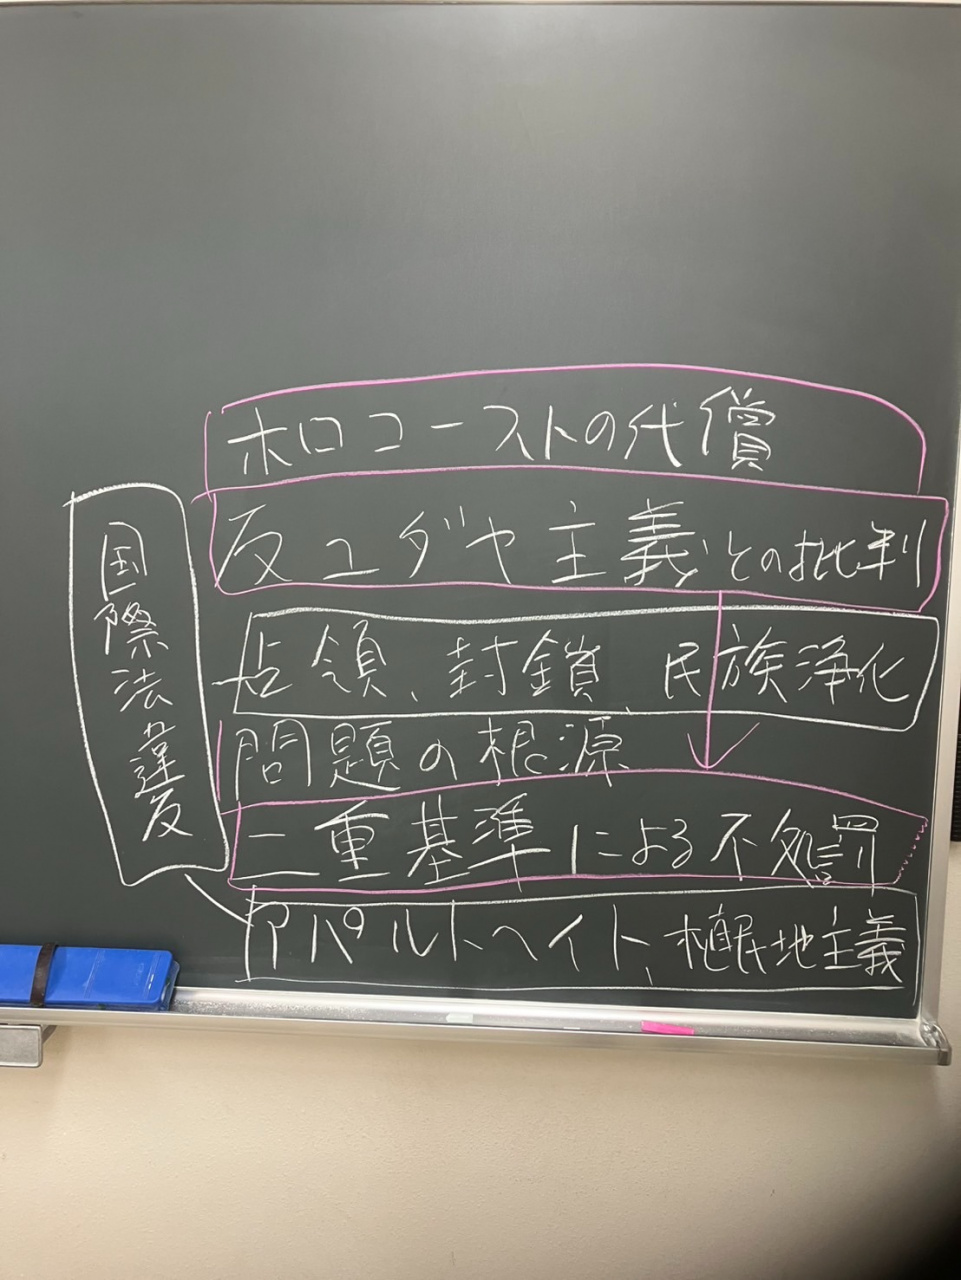 ホロコーストの代償
反ユダヤ主義との批判
占領、封鎖、民族浄化
問題の根源
二重基準による不処罰
アパルトヘイト、植民地主義
国際法違反